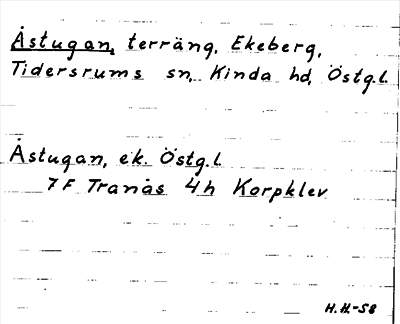 Åstugan, terräng, Ekeberg,
Tidersrums sn, Kinda hd, Östg.l.
Åstugan, ek. Östg.l
7 F Tranås 4h Korpklev
H.H.-58